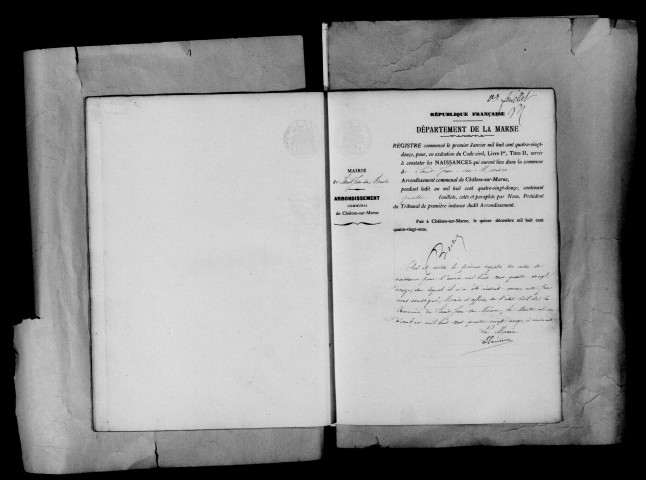 1er feuillet
RÉPUBLIQUE FRANÇAISE
DÉPARTEMENT DE LA MARNE
REGISTRE commencé le premier Janvier mil huit cent quatre-vingt-
douze, pour, en exécution du Code civil, Livre Ier, Titre II, servir
à constater les NAISSANCES qui auront lieu dans la commune
d
Arrondissement communal de Châlons-sur-Marne,
pendant ledit an mil huit cent quatre-vingt-douze, contenant
feuillets, cotés et paraphés par Nous, Président
du Tribunal de première instance dudit Arrondissement.
Fait à Châlons-sur-Marne, le quinze décembre mil huit cent
quatre-vingt-onze.
MAIRIE
de
ARRONDISSEMENT
COMMUNAL
de Châlons-sur-Marne
Clos et arrêté le présent registre des actes de
naissance pour l'année mil huit cent quatre vingt
douze, sur lequel il a été
par nous soussigné, Maire et officier de l'état civil de la
Commune de Saint Jean sur
mil huit cent quatre vingt douze, à minuit
Le Maire